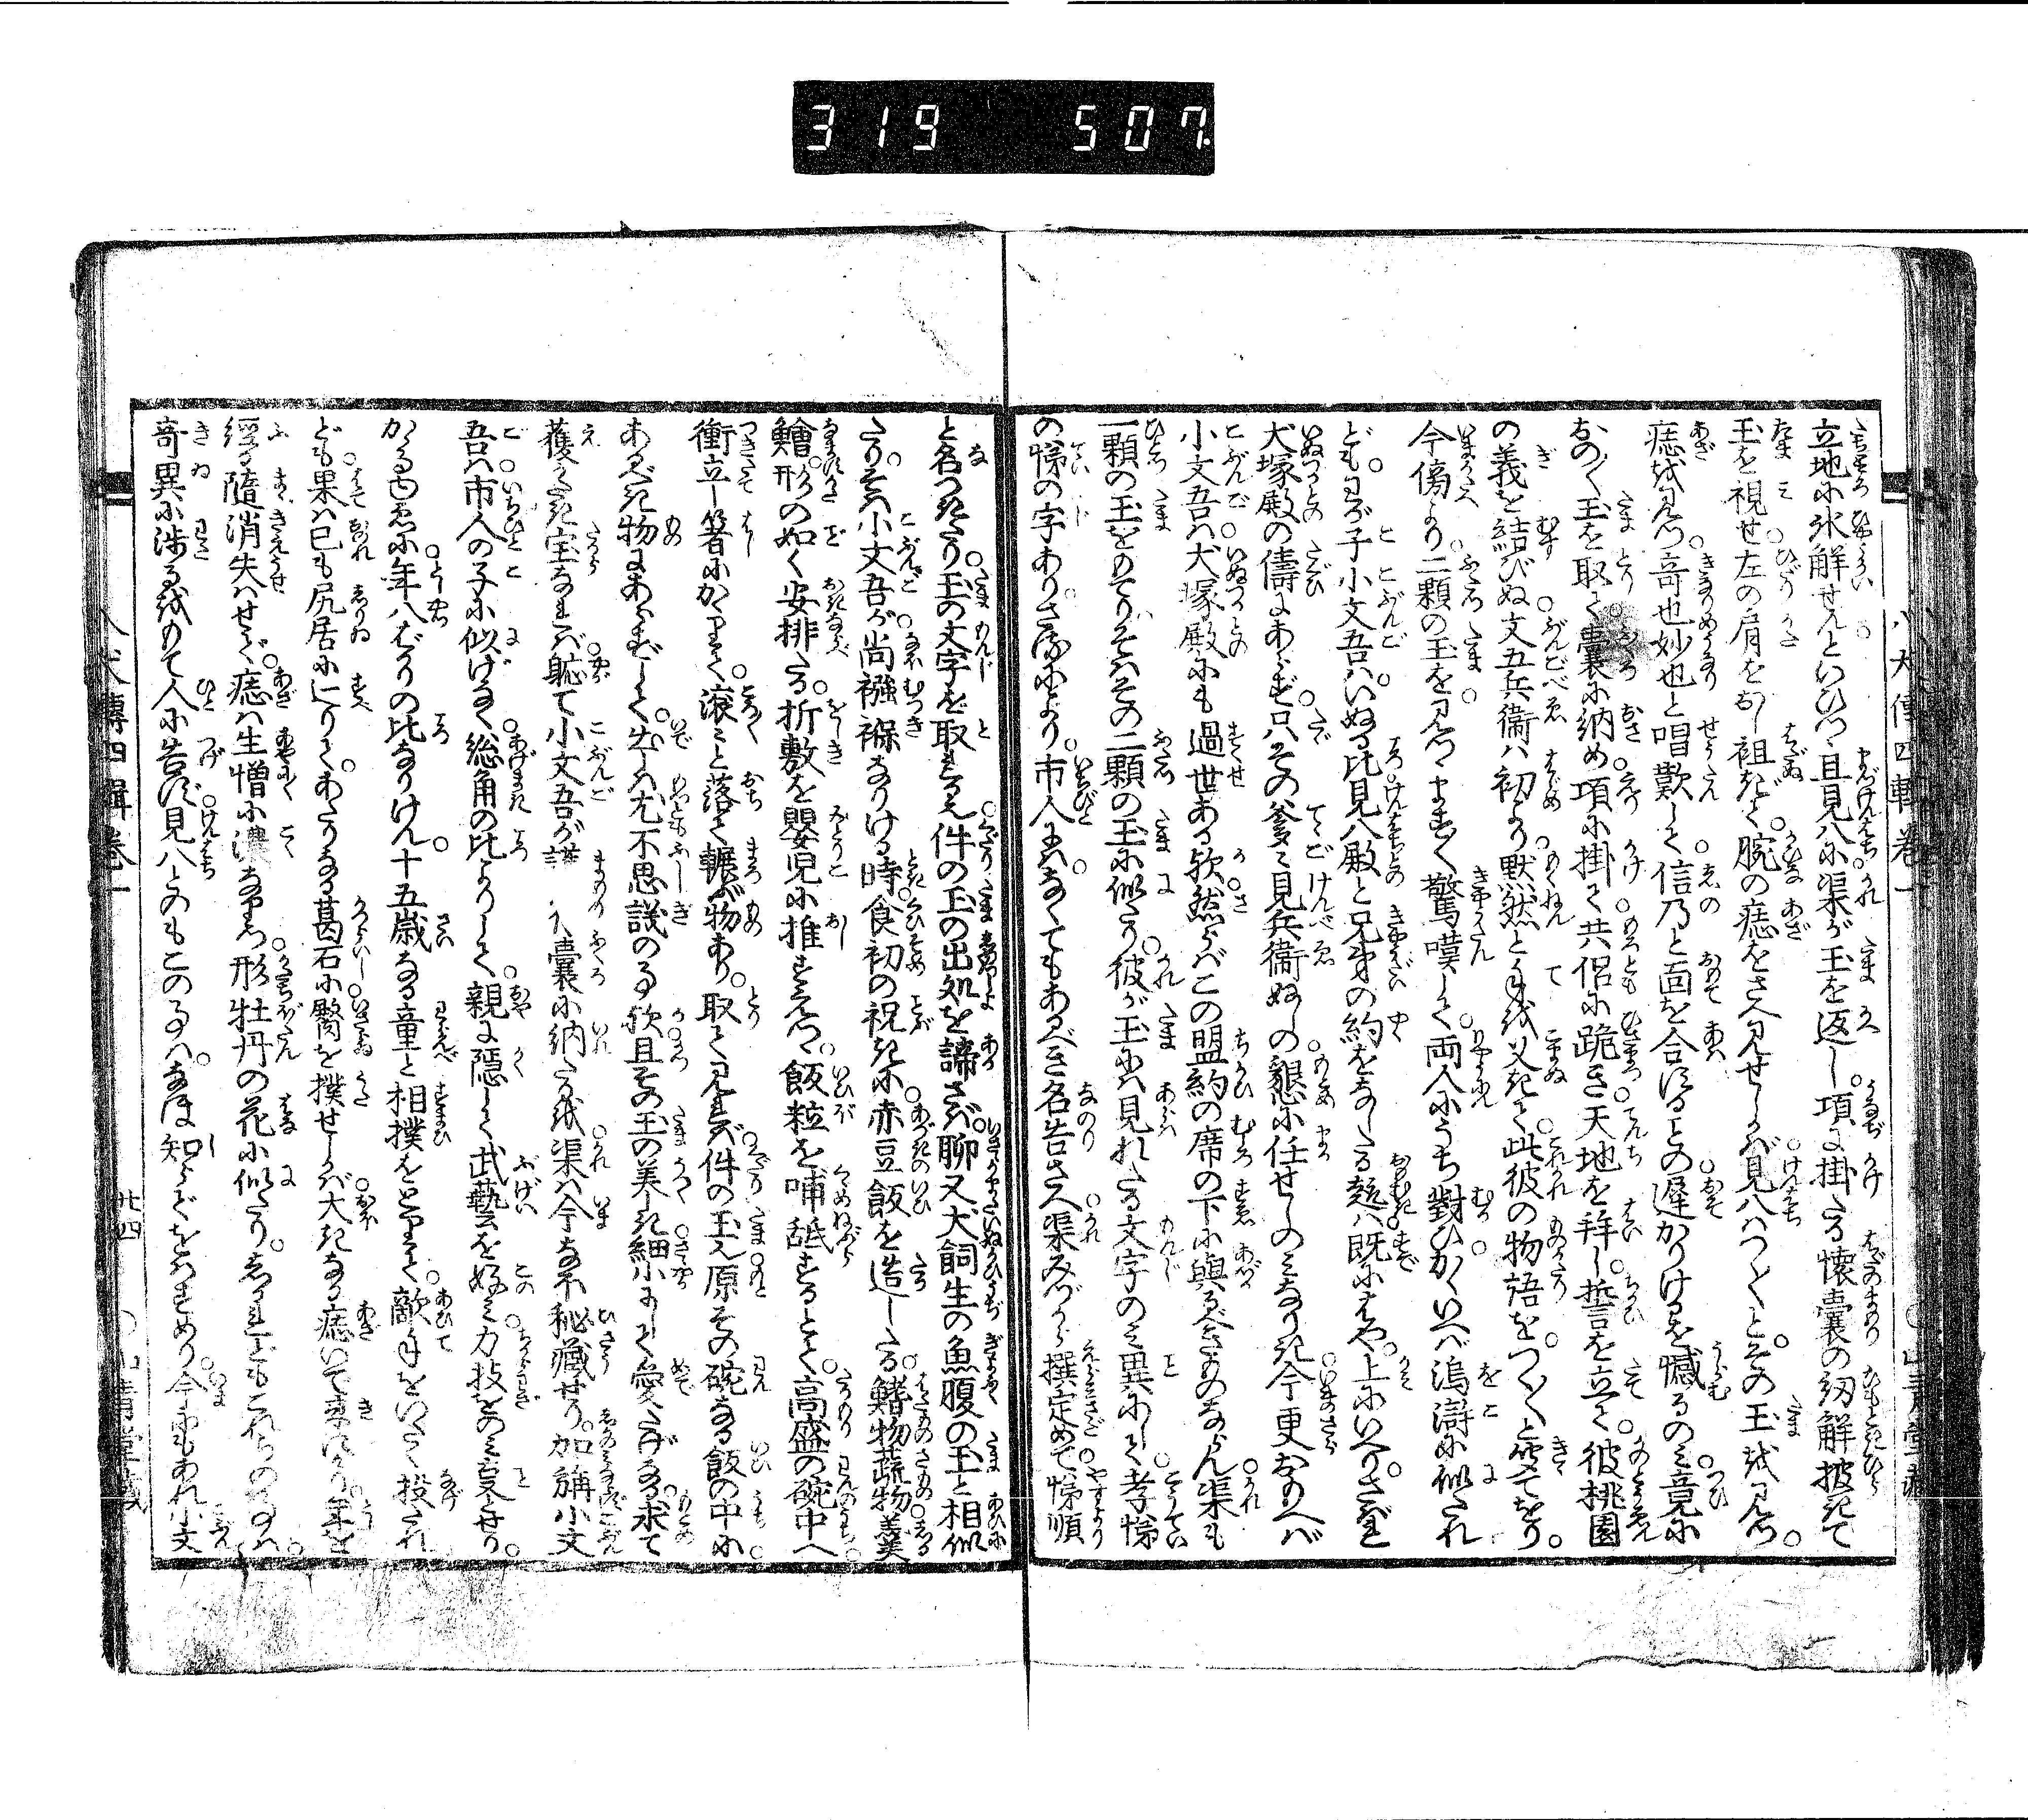 319 507
八犬傳四輯巻一
立地に氷解せんといひつゝ且見八に渠が玉を返し。項に掛たる懐嚢の紐解披きて
玉を視せ左の肩をおし袒ぎて。腕の痣をさへ見せしかば見八はつく〳〵と。その玉を見つ。
痣を見つ。奇也妙也と唱歎して信乃と面を合するの遅かりけるを憾るのみ。竟に
おの〳〵玉を取て嚢に納め。項に掛て共侶に跪き。天地を拝し誓を立て。彼桃園
の義を結びぬ。文五兵衛は初より黙然と手を叉きて。此彼の物語を。つく〳〵と聞てをり。
今傍より二顆の玉を見つゝます〳〵驚嘆して。両人にうち對ひ。かくいへば烏滸に似たれ
ども。わが子小文吾は。いぬる比見八殿と兄弟の約をなしたる趣は既にはや。上にいへり。されば
犬塚殿の儔にあらず。只その爹々見兵衛ぬしの懇に任せしのみなりき。今更おもへば
小文吾は犬塚殿にも過世ある歟。然らばこの盟約の席の下に與るべきものならん。渠も
一顆の玉をもてり。そはその二顆の玉に似たり。彼が玉には見れたる文字のみ異にして。孝悌
の悌の字あり。さるにより。市人には。なくてもあるべき名告さへ。渠みづから撰定めて。悌順
と名つけたり。玉の文字を取れるなり。件の玉の出処を諦さば。聊又犬飼生の魚腹の玉と相似
たり。そは小文吾が尚襁褓なりける時。食初の祝きに。赤豆飯を造したる。鰭物蔬物羮
鱠。形の如く安排たる。折敷を嬰児に推すえつゝ。飯粒を哺舐するとて。高盛の碗中へ
衝立し箸にかゝりて。滾々と落て輾ぶ物あり。取て見れば件の玉也。原その碗なる飯の中に
あるべき物にあらずして。出しは尤不思議の事歟。且その玉の美しき。細小にして愛たげなる。求て
獲がたき宝なれば。軈て小文吾が護 嚢に納たるを。渠は今なほ秘蔵せり。加旃小文
吾は市人の子に似げなく。総角の比よりして。親に隠して武藝を好み。力技をのみ旨とせり。
かゝる由縁に年八ばかりの比なりけん。十五歳なる童と相撲をとりて。敵手をいたく投たれ
ども。果は已も尻居に辷りて。あたりなる葛石に臀を撲せしかば。大きなる痣いで来にけり。年を
経る隨消失はせで。痣は生憎に濃なりつゝ形牡丹の花に似たり。されどもこれらの事は。
奇異に渉るをもて人に告ず。見八とのもこの事は。なほ知らでをはすめり。今にもあれ小文
八犬傳四輯巻一
廿四
山青堂藏